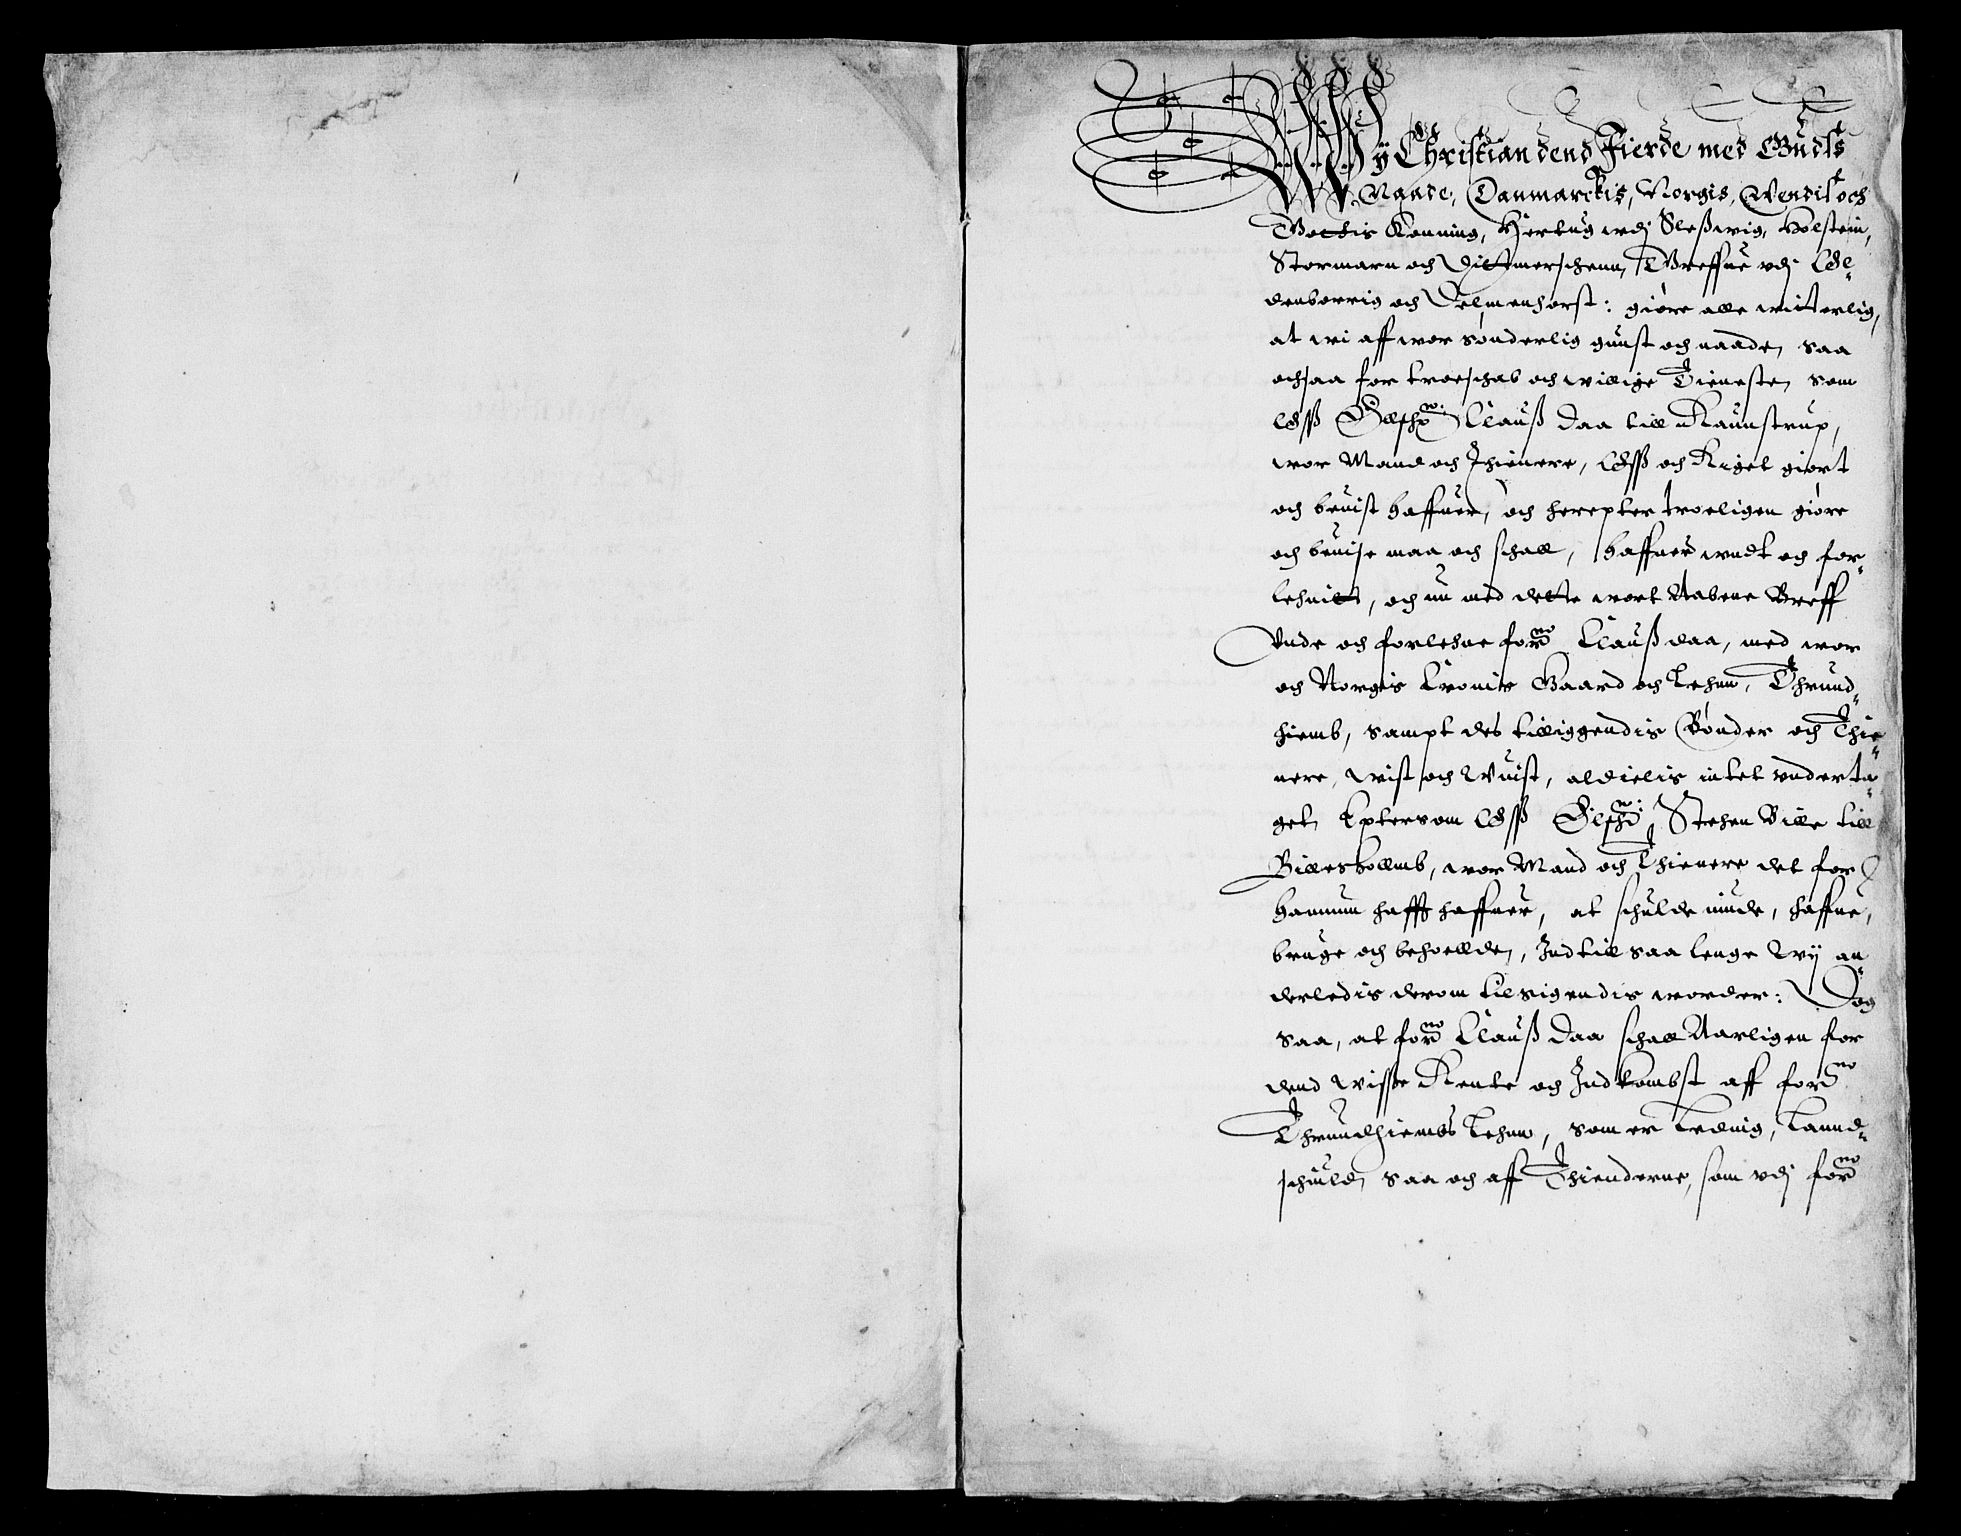 Wÿ Christian dend Fierde med Guds
Naade, Danmarckis, Norgis, Vendis och
Gothis Konning, Hertug udj Sleßwig, Holstein,
Stormarn och Dittmerschenn, Greffue vdj Ol¬
denborrig och Delmenhorst: giøre alle witterlig,
at wi aff wor sønderlig gunst och naade, saa
ochsaa for troeschab och willige Tieneste, som
Oss Elschℯ Clauß Daa till Raunstrup,
wor Mand och Thienere, Oss och Riget giort
och beuist haffuer, och herepter troeligen giøre
och beuise maa och schall, haffuer undt och for¬
lehnitt, och nu med dette wort Aabene Breff
Unde och forlehne forne Clauß Daa, med wor
och Norgis Cronis Gaard och Lehnn, Thrund¬
hiemb, sampt des tilliggendis Bønder och Thie¬
nere, wist och Wuist, aldielis intet underta¬
get, Eptersom Oss Elschℯ Stehen Bille till
Billeshollmb, wor Mand och Thienere det for
hannum hafft haffuer, at schulde niude, haffue,
bruge och beholde, Indtill saa lenge Wÿ an¬
derledis derom tilsigendis worder: Dog
saa, at forne Clauß Daa schall Aarligen for
dend Wisse Rente och Indkombst aff forne
Thrundhiembs Lehnn, som er Leding, Lannd¬
schuld, saa och aff Thienderne, som vdj forne